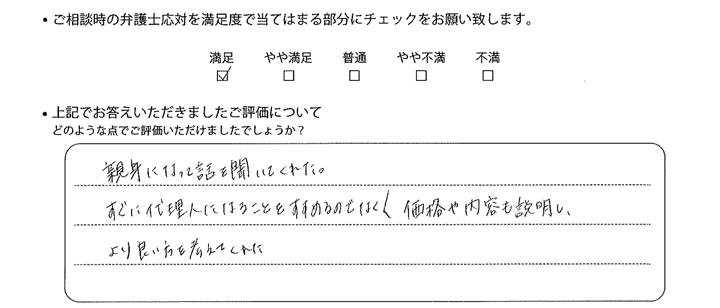 ・ご相談時の弁護士応対を満足度で当てはまる部分にチェックをお願い致します。
満足 やや満足 普通 やや不満 不満
☑ □ □ □ □
・上記でお答えいただきましたご評価について
どのような点でご評価いただけましたでしょうか？
親身になって話を聞いてくれた。
すぐに代理人になることをすすめるのではなく 価格や内容も説明し、
より良い方を考えてくれた